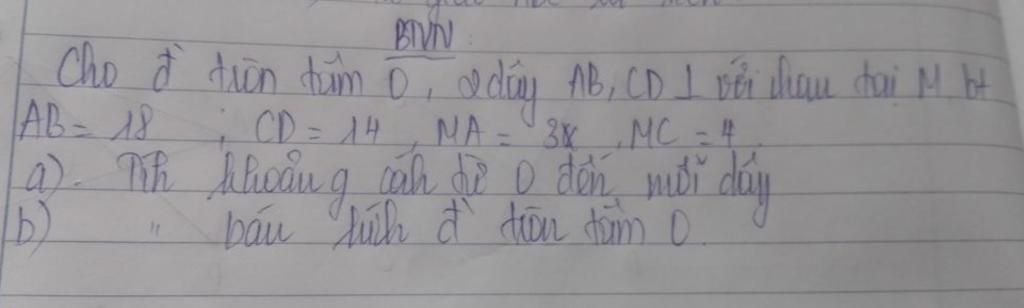 BTVN
Cho đ' tròn tâm O, 2 dây AB, CD ⊥ với nhau tại M. bt
AB = 18 ; CD = 14, MA = 3, MC = 4.
a). Tih khoảng cáh từ O đến mỗi dây
b) " bán kíh đ' tròn tâm O.